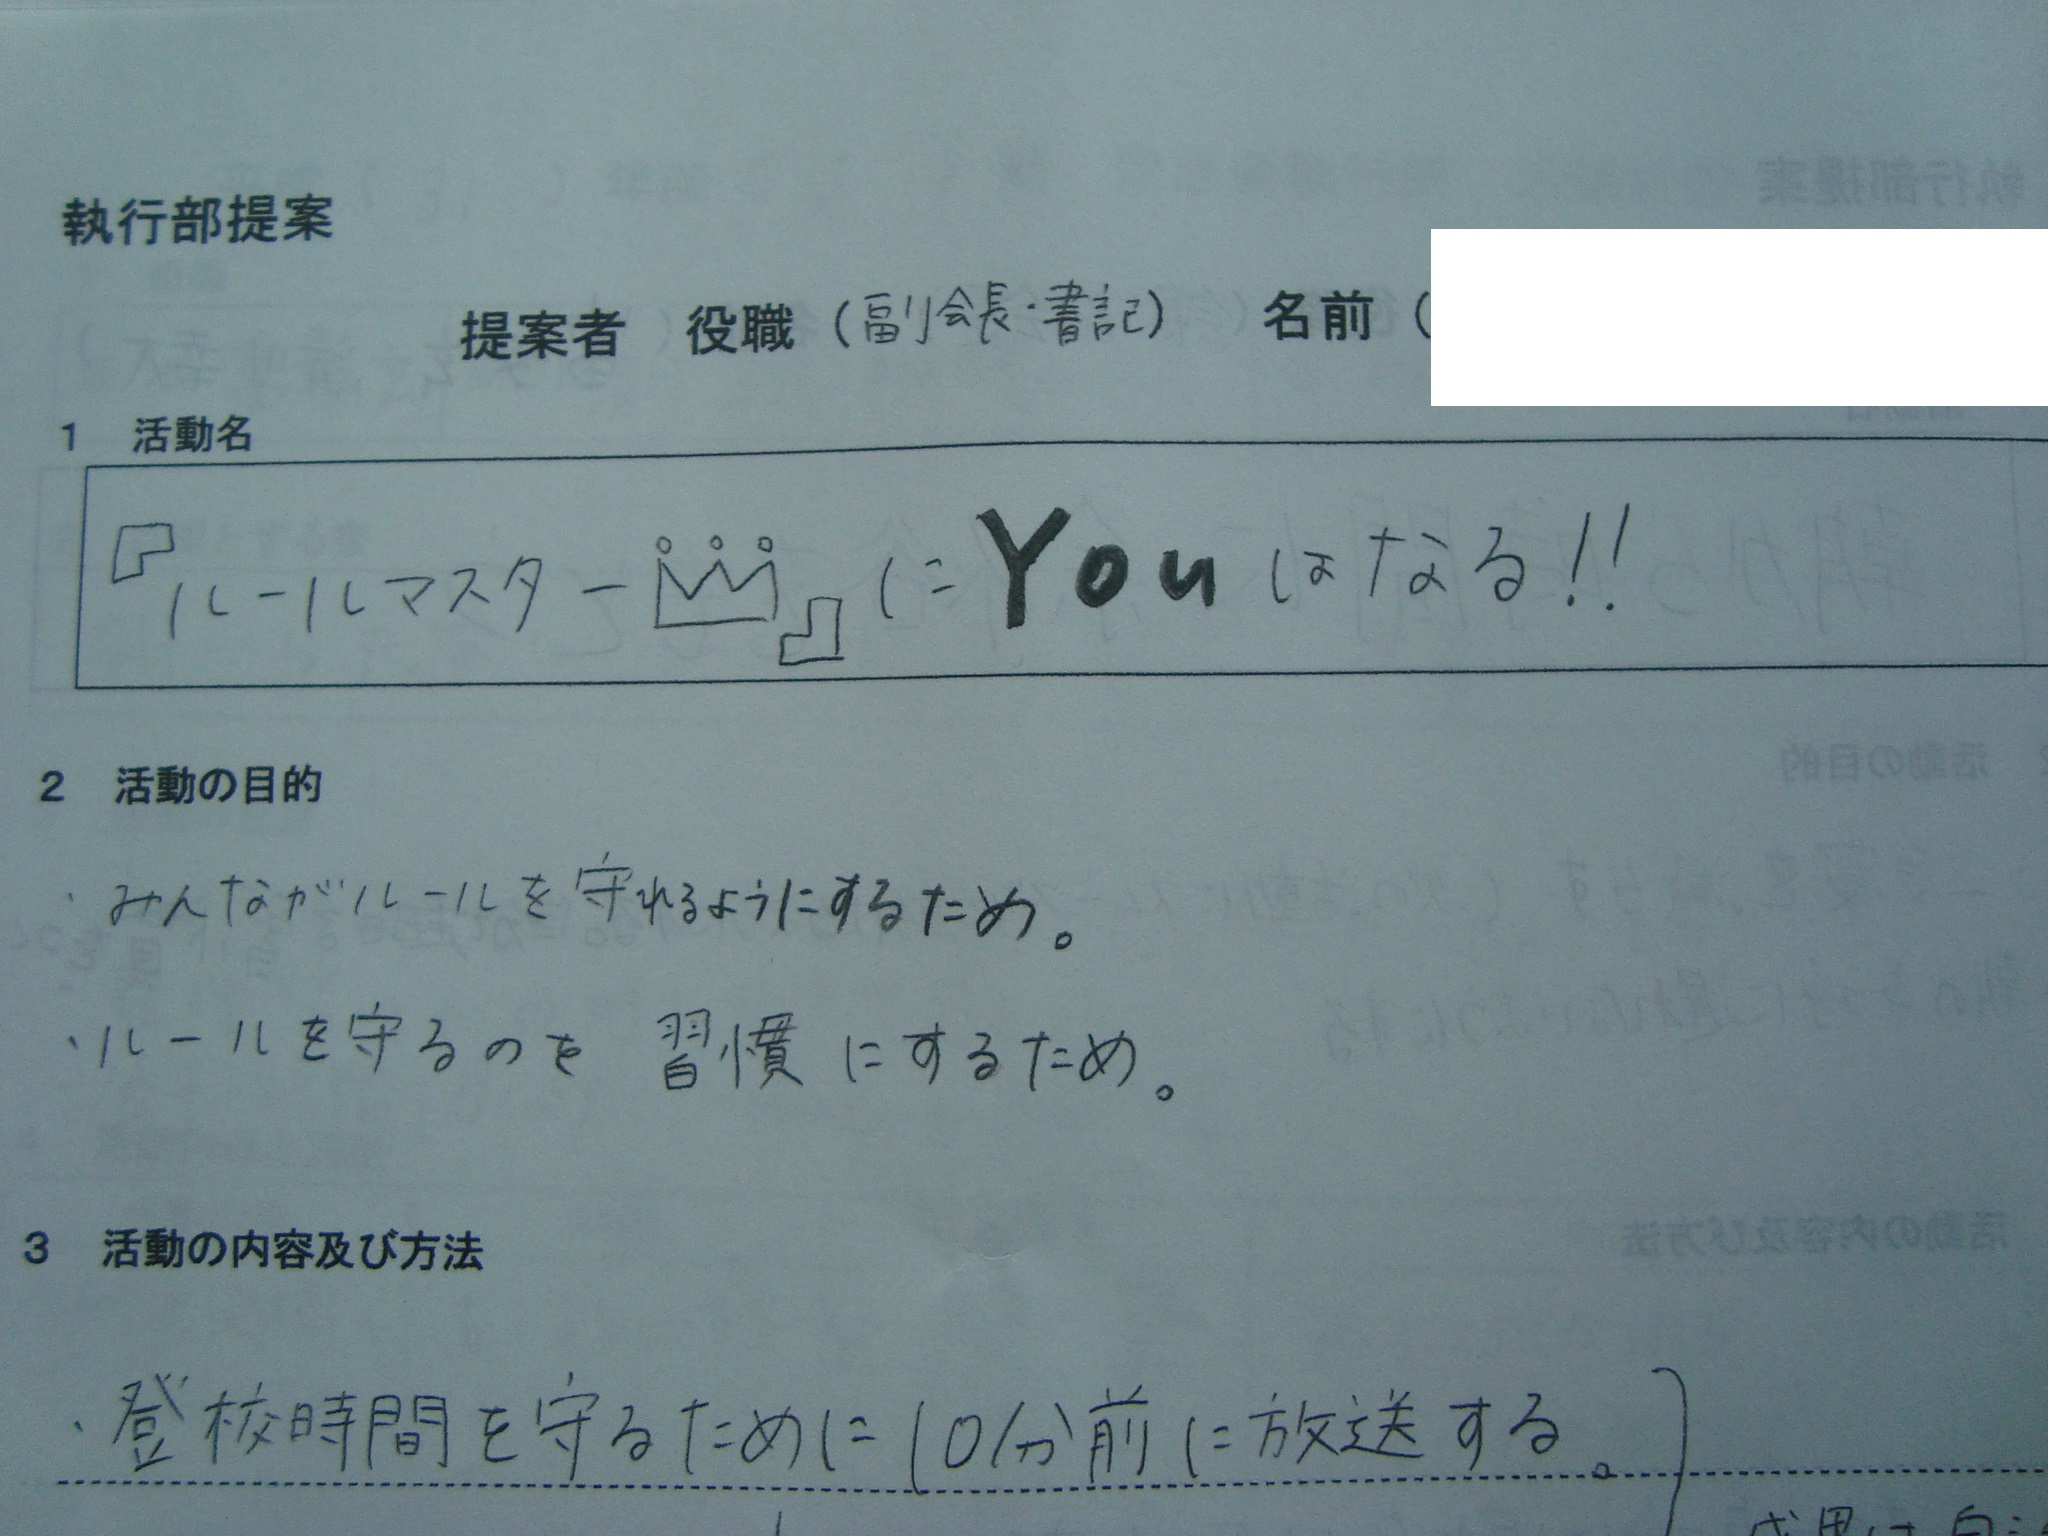 執行部提案
提案者 役職 (副会長・書記) 名前 (
1 活動名
『ルールマスター』に You はなる!!
2 活動の目的
・みんながルールを守れるようにするため。
・ルールを守るのを 習慣 にするため。
3 活動の内容及び方法
・登校時間を守るために10分前に放送する。